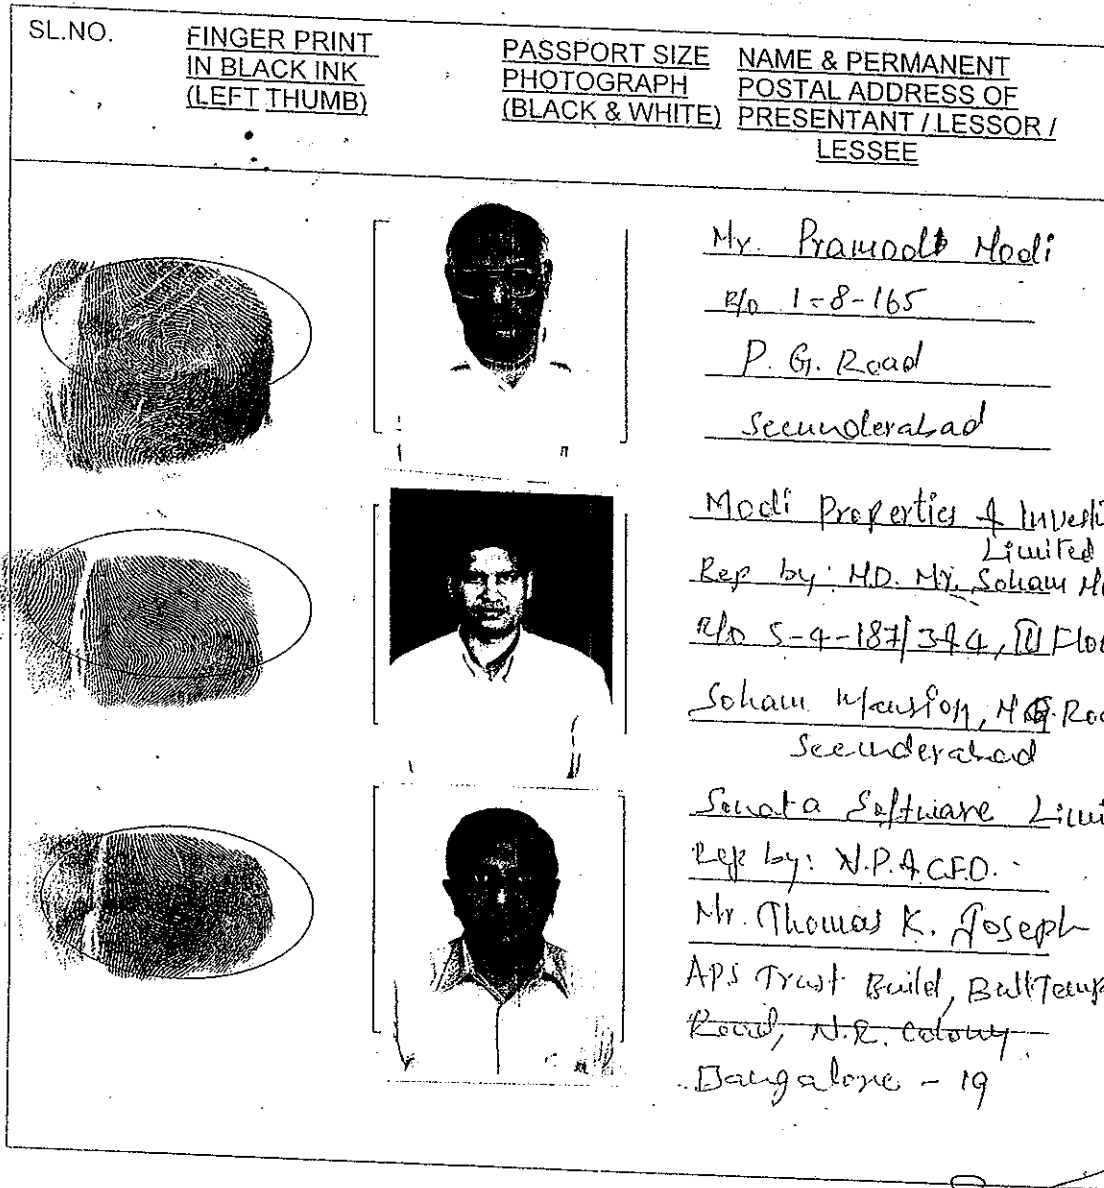 SL.NO.
FINGER PRINT
IN BLACK INK
(LEFT THUMB)
PASSPORT SIZE
PHOTOGRAPH
(BLACK & WHITE)
NAME & PERMANENT
POSTAL ADDRESS OF
PRESENTANT / LESSOR /
LESSEE
Mr. Pramod Modi
R/o 1-8-165
P. G. Road
Secunderabad
Modi Properties & Investi
Limited
Rep by: M.D. Mr. Soham Mo
R/o 5-4-187/3&4, III Floo
Soham Mansion, M.G. Roa
Secunderabad
Sonata Software Limi
Rep by: V.P. & C.F.O.
Mr. Thomas K. Joseph
APS Trust Build, Bull Temp
Road, N.R. Colony
Bangalore - 19